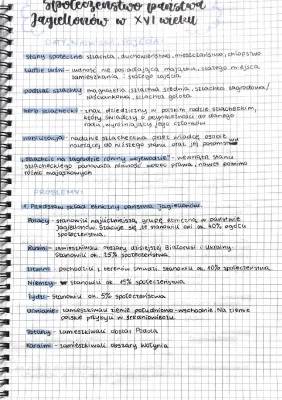 Społeczeństwo państwa
Jagiellonów w XVI wieku
stany społeczne - szlachta, duchowieństwo, mieszczaństwo, chłopstwo
ludzie luźni - ludność nie posiadająca majątku, stałego miejsca
zamieszkania i stałego zajęcia
podział szlachty - magnateria, szlachta średnia, szlachta zagrodowa/
zaściankowa, szlachta gołota
herb szlachecki - znak dziedziczny w polskim rodzie szlacheckim,
który świadczy o przynależności do danego
rodu, wyróżniający jego członków
nobilitacja - nadanie szlachectwa przez władcę osobie
należącej do niższego stanu oraz jej potomstwu
"szlachcic na zagrodzie równy wojewodzie" - wewnątrz stanu
szlacheckiego panowała równość wobec prawa, nawet pomimo
różnic majątkowych
PROBLEMY:
1. Przedstaw skład etniczny państwa Jagiellonów.
Polacy - stanowili najliczniejszą grupę etniczną w państwie
Jagiellonów. Szacuje się, że stanowili oni ok. 40% ogółu
społeczeństwa.
Rusini - zamieszkiwali obszary dzisiejszej Białorusi i Ukrainy.
Stanowili ok. 25% społeczeństwa.
Litwini - pochodzili z terenów Żmudzi. Stanowili ok. 10% społeczeństwa
Niemcy - stanowili ok. 15% społeczeństwa
Żydzi - stanowili ok. 5% społeczeństwa
Ormianie - zamieszkiwali ziemie południowo-wschodnie. Na ziemie
polskie przybyli w średniowieczu.
Tatarzy - zamieszkiwali obszar Podola
Karaimi - zamieszkiwali obszary Wołynia